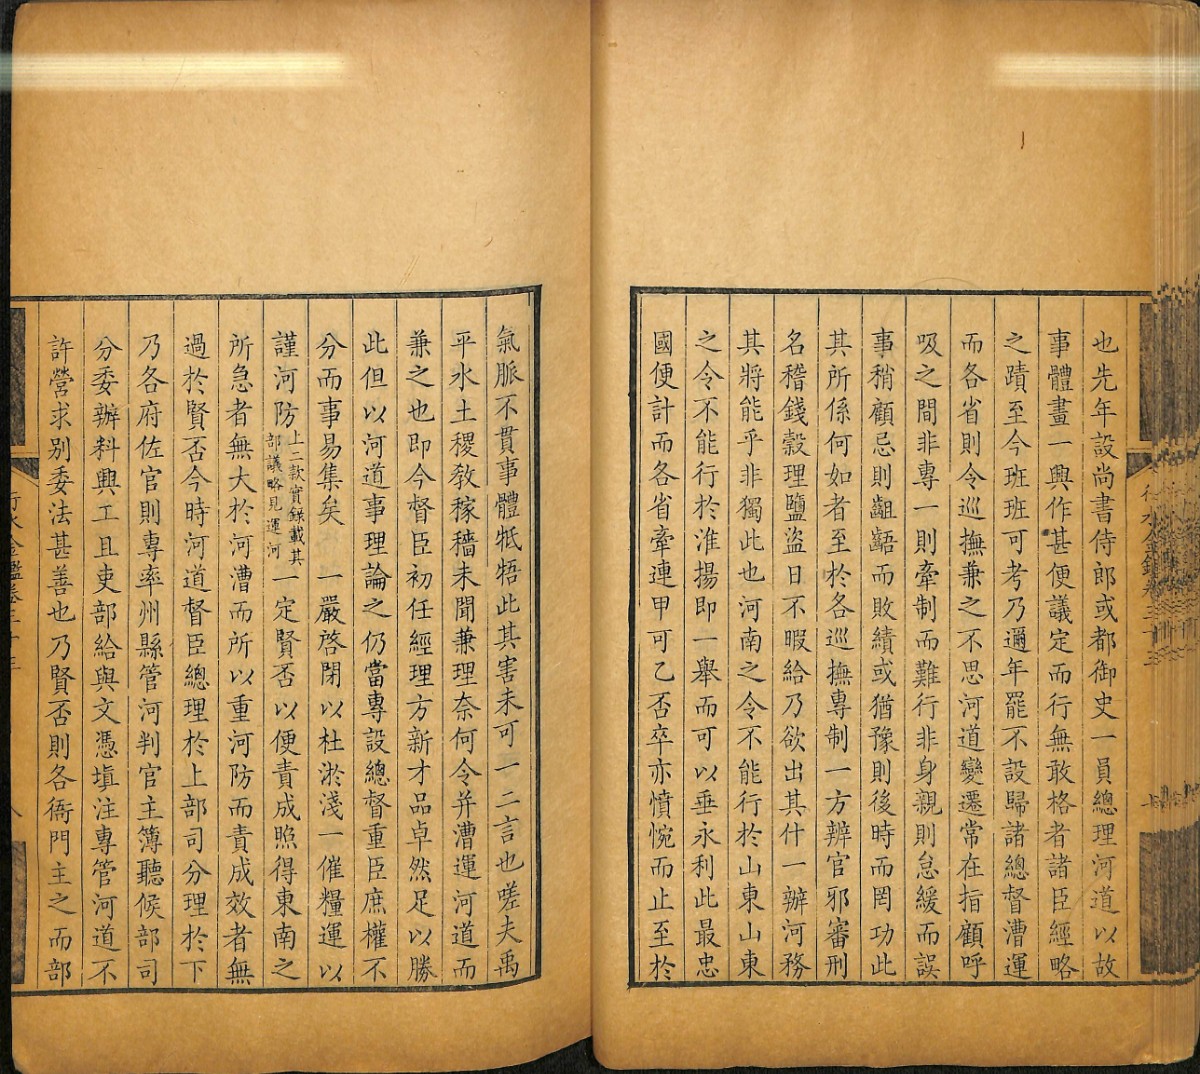 也先年設尚書侍郎或都御史一員總理河道以故
事體畫一興作甚便議定而行無敢格者諸臣經略
之蹟至今班班可考乃邇年罷不設歸諸總督漕運
而各省則令巡撫兼之不思河道變遷常在指顧呼
吸之間非專一則牽制而難行非身親則怠緩而誤
事稍顧忌則齟齬而敗績或猶豫則後時而罔功此
其所係何如者至於各巡撫專制一方辨官邪審刑
名稽錢穀理鹽盜日不暇給乃欲出其什一辦河務
其將能乎非獨此也河南之令不能行於山東山東
之令不能行於淮揚即一舉而可以垂永利此最忠
國便計而各省牽連甲可乙否卒亦憤惋而止至於
氣脈不貫事體牴牾此其害未可一二言也嗟夫禹
平水土稷敎稼穡未聞兼理奈何令并漕運河道而
兼之也即今督臣初任經理方新才品卓然足以勝
此但以河道事理論之仍當專設總督重臣庶權不
分而事易集矣 一嚴啓閉以杜淤淺一催糧運以
謹河防上二款實錄載其部議略見運河一定賢否以便責成照得東南之
所急者無大於河漕而所以重河防而責成效者無
過於賢否今時河道督臣總理於上部司分理於下
乃各府佐官則專率州縣管河判官主簿聽候部司
分委辦料興工且吏部給與文憑塡注專管河道不
許營求別委法甚善也乃賢否則各衙門主之而部